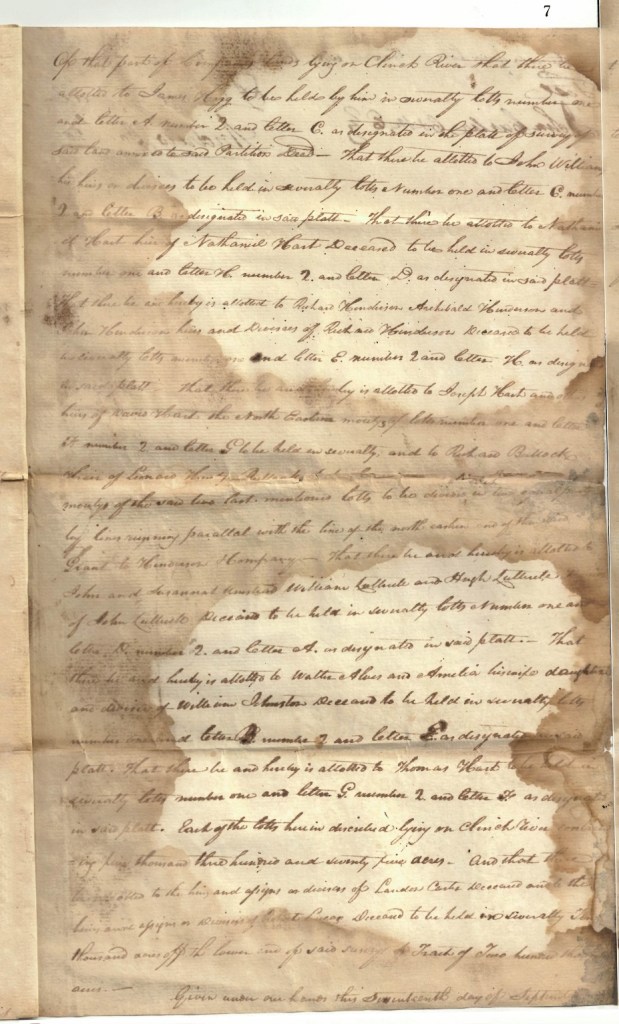 7
Of that part of Company lands lying on Clinch River that there be
allotted to James Hogg to be held by him in severalty lotts number one
and letter A. number 2. and letter C. as designated in the platt of survey of
said land annexed to said Partition Deed — That there be allotted to John Williams
his heirs or devisees to be held in severalty lotts Number one and letter C. number
2 and letter B as designated in said platt — That there be allotted to Nathani
el Hart heir of Nathaniel Hart Deceased to be held in severalty lotts
number one and letter H. number 2. and letter D. as designated in said platt
That there be and hereby is allotted to Richard Henderson Archibald Henderson and
John Henderson heirs and Devisees of Richard Henderson Deceased to be held
in severalty lotts number one and letter E. number 2 and letter H. as design
in said platt That there be and hereby is allotted to Joseph Hart and
heirs of David Heart the North Eastern moiety of lotts number one and letter
number 2 and letter G to be held in severalty, and to Richard Bullock
heirs of Leonard Henly Bullock
moiety of the said two last mentioned lotts to be divided in two
by lines running parallal with the line of the north eastern end of the said
Grant to Henderson & Company — That there be and hereby is allotted to
John and Susannah Umstead William Lutterle and Hugh Lutterle
of John Lutterle Deceased to be held in severalty lotts Number one and
letter D. number 2. and letter A. as designated in said platt. — That
there be and hereby is allotted to Walter Alves and Amelia his wife daughter
and devisee of William Johnston Deceased to be held in severalty lotts
number one and letter B. number 2 and letter E. as designated in said
platt. That there be and hereby is allotted to Thomas Hart to be held in
severalty lotts number one and letter G. number 2 and letter F as designat
in said platt. Each of the lotts herein described lying on Clinch River contain
ing five thousand three hundred and seventy five acres. And that there
be allotted to the heirs and assigns or devisees of Landon Carter Deceased and to the
heirs and assigns or Devisees of Robert Lucas Deceased to be held in severalty Ten
thousand acres off the lower end of said survey & Tract of Two hundred thou
acres. —
Given under our hands this Seventeenth day of Septem